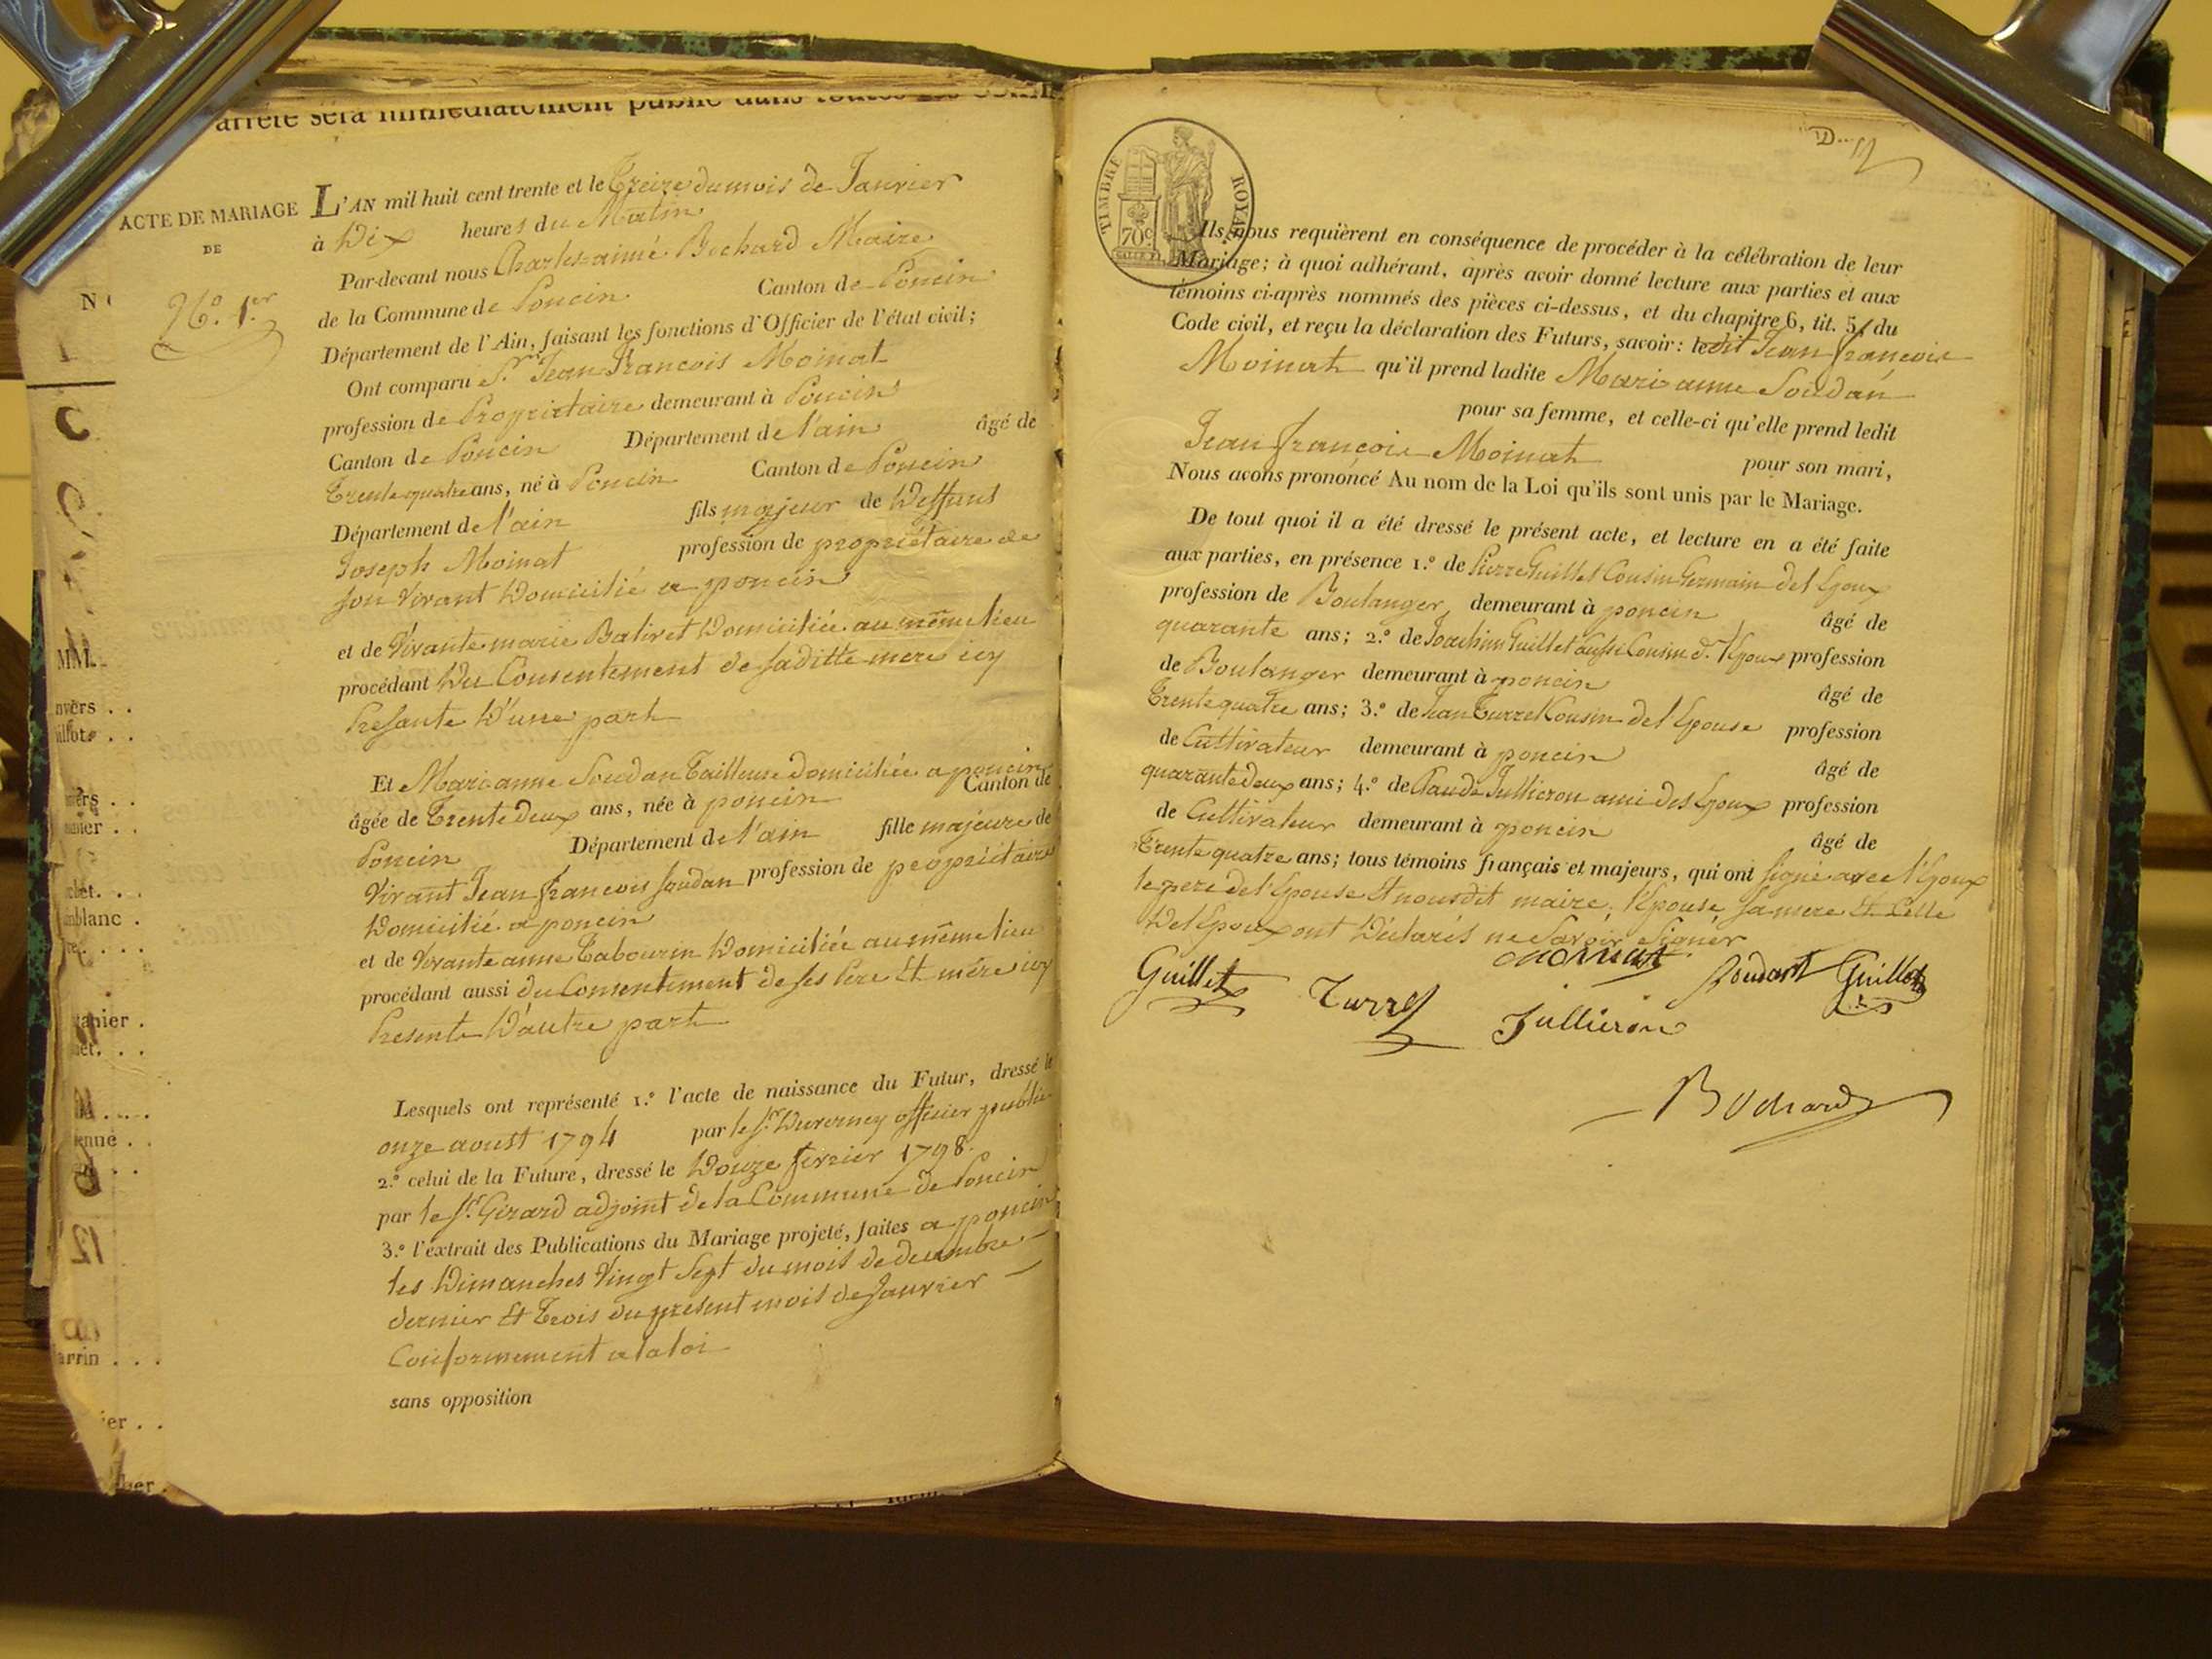 arrêté sera immédiatement publié dans toutes les
ACTE DE MARIAGE
DE
N.º 1.er
L'AN mil huit cent trente et le Treize du mois de Janvier
à Dix heures du Matin
Par-devant nous Charles-aimé Bochard Maire
de la Commune de Poncin Canton de Poncin
Département de l'Ain, faisant les fonctions d'Officier de l'état civil;
Ont comparu S.r Jean François Moinat
profession de Propriétaire demeurant à Poncin
Canton de Poncin Département de l'ain âgé de
Trente quatre ans, né à Poncin Canton de Poncin
Département de l'ain fils majeur de Deffunt
Joseph Moinat profession de propriétaire de
son Vivant Domicilié a poncin
et de Vivante marie Balivet Domiciliée au même lieu
procédant Du Consentement de saditte mere icy
Presante D'une part
Et Marianne Soudan Tailleuse domiciliée a poncin
âgée de Trente Deux ans, née à poncin Canton de
Poncin Département de l'ain fille majeure de
Vivant Jean françois soudan profession de propriétaire
Domicilié a poncin
et de Vivante anne Tabourin Domiciliée au même lieu
procédant aussi du Consentement de ses Pere Et mére icy
Presents D'autre part
Lesquels ont représenté 1.º l'acte de naissance du Futur, dressé le
onze aoust 1794 par le S.r Duverney officier public
2.º celui de la Future, dressé le Douze fevrier 1798.
par le S.r Girard adjoint de la Commune de Poncin
3.º l'extrait des Publications du Mariage projeté, faites a poncin
les Dimanches Vingt Sept du mois de decembre
dernier Et Trois du present mois de Janvier
Conformement a la loi
sans opposition
D... 
TIMBRE ROYAL
70c
Ils nous requièrent en conséquence de procéder à la célébration de leur
Mariage; à quoi adhérant, après avoir donné lecture aux parties et aux
témoins ci-après nommés des pièces ci-dessus, et du chapitre 6, tit. 5, du
Code civil, et reçu la déclaration des Futurs, savoir: ledit Jean françois
Moinat qu'il prend ladite Marianne Soudan
pour sa femme, et celle-ci qu'elle prend ledit
Jean françois Moinat pour son mari,
Nous avons prononcé Au nom de la Loi qu'ils sont unis par le Mariage.
De tout quoi il a été dressé le présent acte, et lecture en a été faite
aux parties, en présence 1.º de Pierre Guillet Cousin Germain del Epoux
profession de Boulanger demeurant à poncin âgé de
quarante ans; 2.º de Joachim Guillet aussi Cousin d. l'Epoux profession
de Boulanger demeurant à poncin âgé de
Trente quatre ans; 3.º de Jean Turrel Cousin del Epouse profession
de Cultivateur demeurant à poncin âgé de
quarante deux ans; 4.º de Claude Jullieron ami des Epoux profession
de Cultivateur demeurant à poncin âgé de
Trente quatre ans; tous témoins français et majeurs, qui ont signé avec l'Epoux
le pere de l'Epouse Et nousdit maire; l'Epouse, sa mere Et Celle
Del Epoux ont Déclarés ne Savoir Signer
Moinat
Guillet Turrel Jullieron Soudant Guillet
Bochard